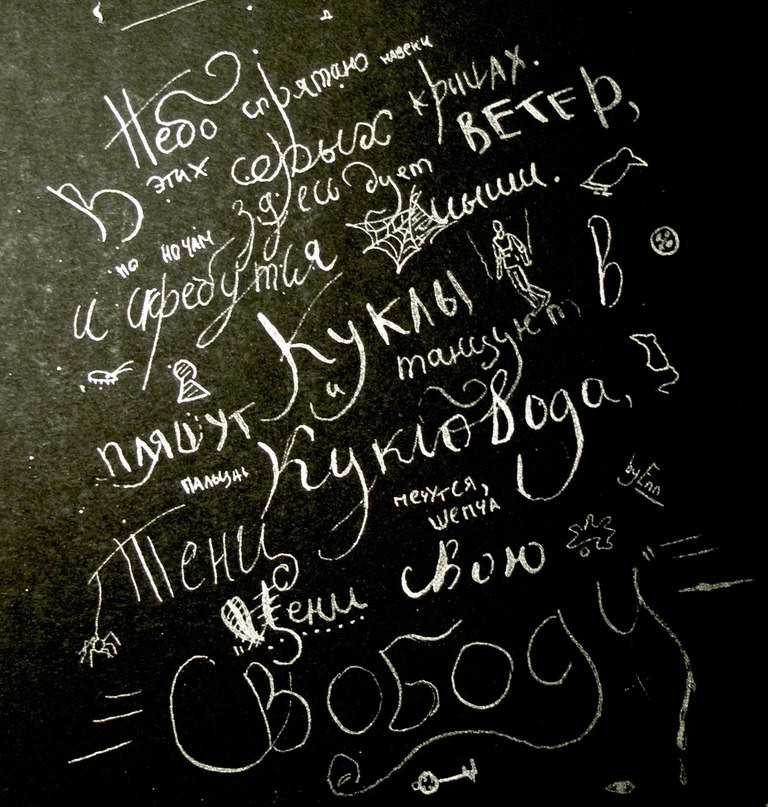 Небо спрятано навеки
В этих серых крицах.
по ночам здесь дует ВЕТЕР,
и скребутся мыши.
Куклы в
пляшут и танцуют
пальцы Кукловода,
Тени мечутся, шепча
Цени свою
Свободу
by Enn